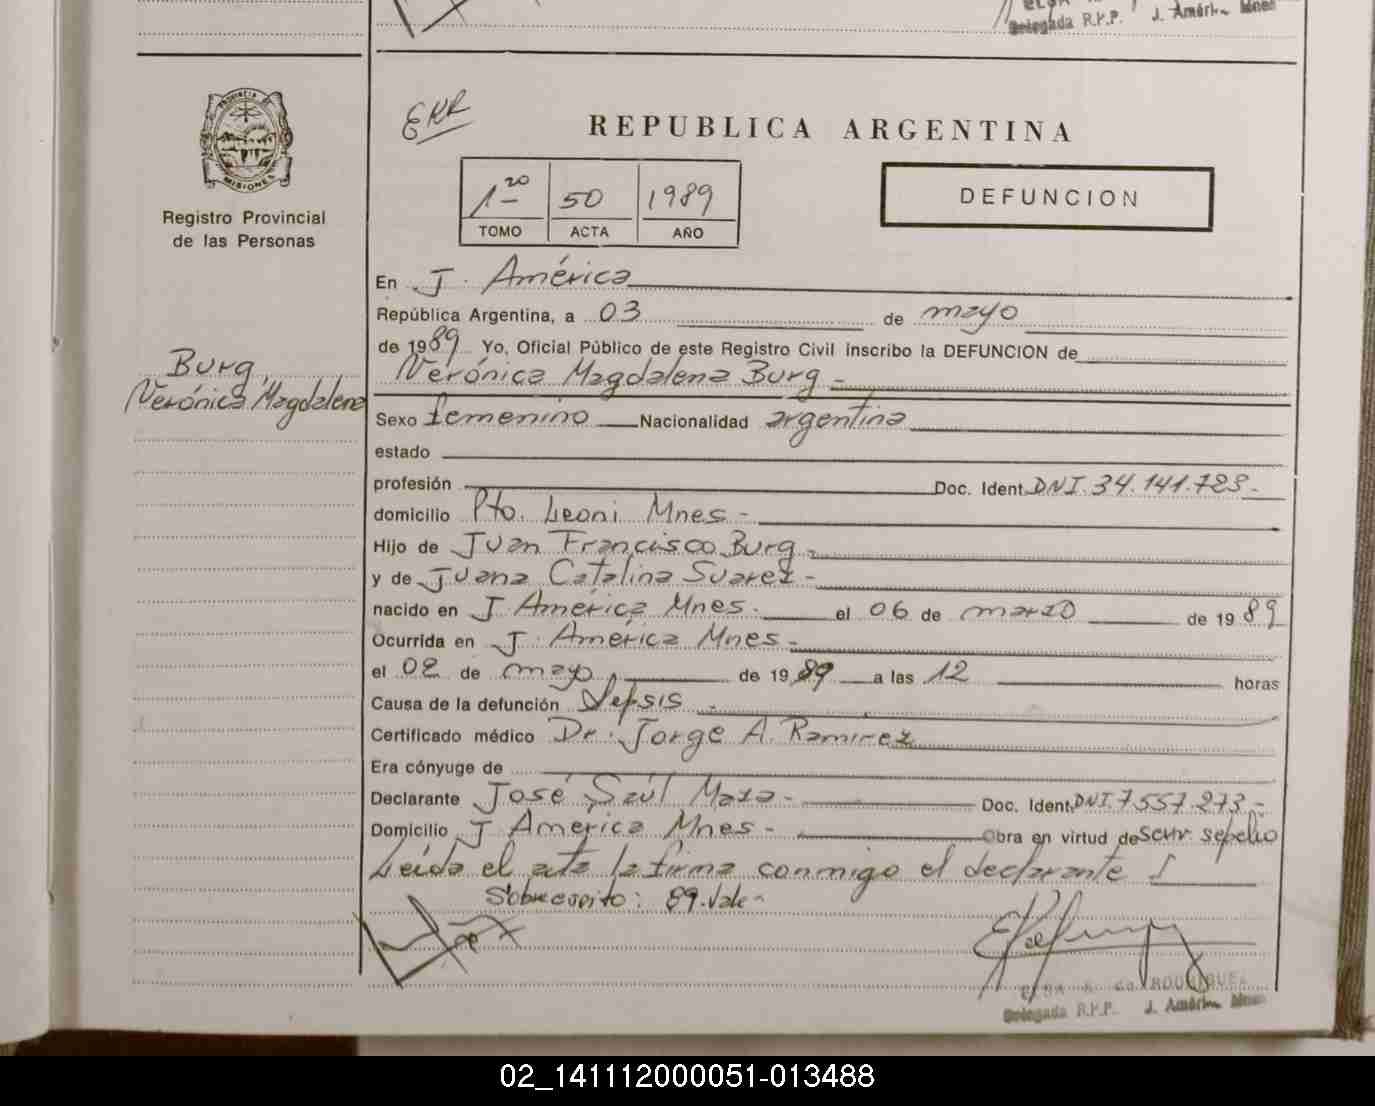 Delegada R.P.P. J. América Mnes
PROVINCIA DE
MISIONES
Registro Provincial
de las Personas
Burg,
Verónica Magdalena
REPUBLICA ARGENTINA
1 20 50 1989
TOMO ACTA AÑO
DEFUNCION
En J. América
República Argentina, a 03 de mayo
de 1989 Yo, Oficial Público de este Registro Civil inscribo la DEFUNCION de
Verónica Magdalena Burg -
Sexo femenino Nacionalidad argentina
estado
profesión Doc. Ident. DNI. 34.141.723-
domicilio Pto. Leoni Mnes -
Hijo de Juan Francisco Burg -
y de Juana Catalina Suarez -
nacido en J América Mnes. el 06 de marzo de 1989
Ocurrida en J. América Mnes -
el 02 de mayo de 1989 a las 12 horas
Causa de la defunción Sepsis -
Certificado médico Dr. Jorge A. Ramirez
Era cónyuge de
Declarante José Saúl Maza - Doc. Ident. DNI. 7.557.273-
Domicilio J América Mnes - Obra en virtud de serv. sepelio
Leída el acta la firma conmigo el declarante
Sobrescrito: 89. Vale -
Delegada R.P.P. J. América Mnes
02_141112000051-013488